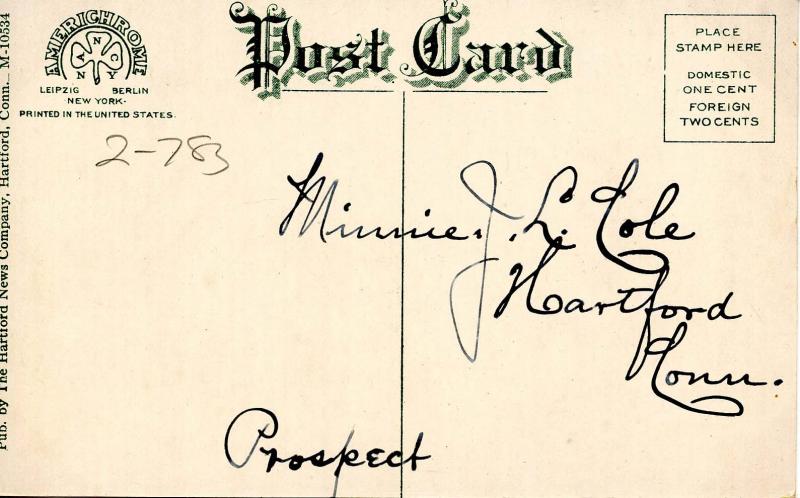 AMERICHROME
ANNCY
LEIPZIG BERLIN
·NEW YORK·
PRINTED IN THE UNITED STATES.
Post Card
PLACE
STAMP HERE
DOMESTIC
ONE CENT
FOREIGN
TWO CENTS
2-783
Minnie. J. L. Cole
Hartford
Conn.
Prospect
Pub. by The Hartford News Company, Hartford, Conn._ M-10534